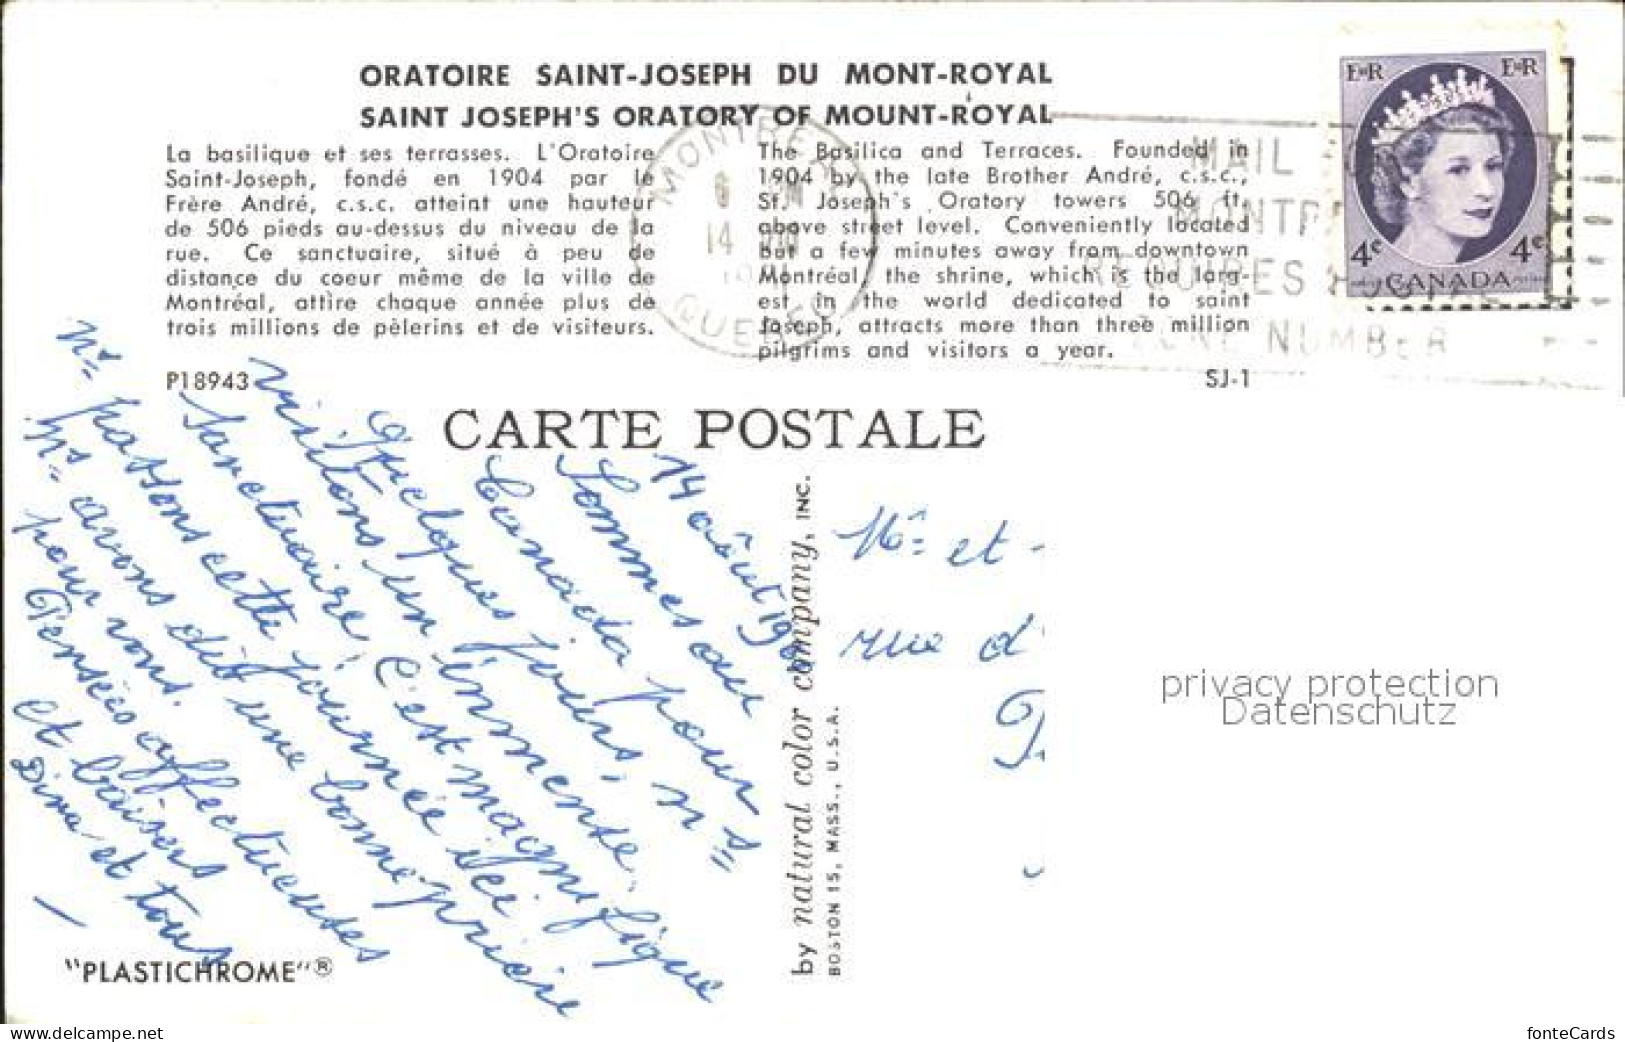 ORATOIRE SAINT-JOSEPH DU MONT-ROYAL
SAINT JOSEPH'S ORATORY OF MOUNT-ROYAL
La basilique et ses terrasses. L'Oratoire
Saint-Joseph, fondé en 1904 par le
Frère André, c.s.c. atteint une hauteur
de 506 pieds au-dessus du niveau de la
rue. Ce sanctuaire, situé à peu de
distance du coeur même de la ville de
Montréal, attire chaque année plus de
trois millions de pèlerins et de visiteurs.
P18943
The Basilica and Terraces. Founded in
1904 by the late Brother André, c.s.c.,
St. Joseph's Oratory towers 506 ft.
above street level. Conveniently located
but a few minutes away from downtown
Montréal, the shrine, which is the larg-
est in the world dedicated to saint
Joseph, attracts more than three million
pilgrims and visitors a year.
SJ-1
MONTREAL
14 VIII
QUEBEC
MAIL
ZONE NUMBER
E II R E II R
4c 4c
CANADA
CARTE POSTALE
14 août 196
Sommes au
Canada pour
quelques jours, ns
visitons un immense
Sanctuaire, c'est magnifique
Nt passons cette journée ici
Ns avons dit une bonne prière
pour vous.
Pensées affectueuses
et baisers
Dina et tous
by natural color company, INC.
BOSTON 15, MASS., U.S.A.
Mr et
rue d'
privacy protection
Datenschutz
"PLASTICHROME"®
www.delcampe.net
fonteCards